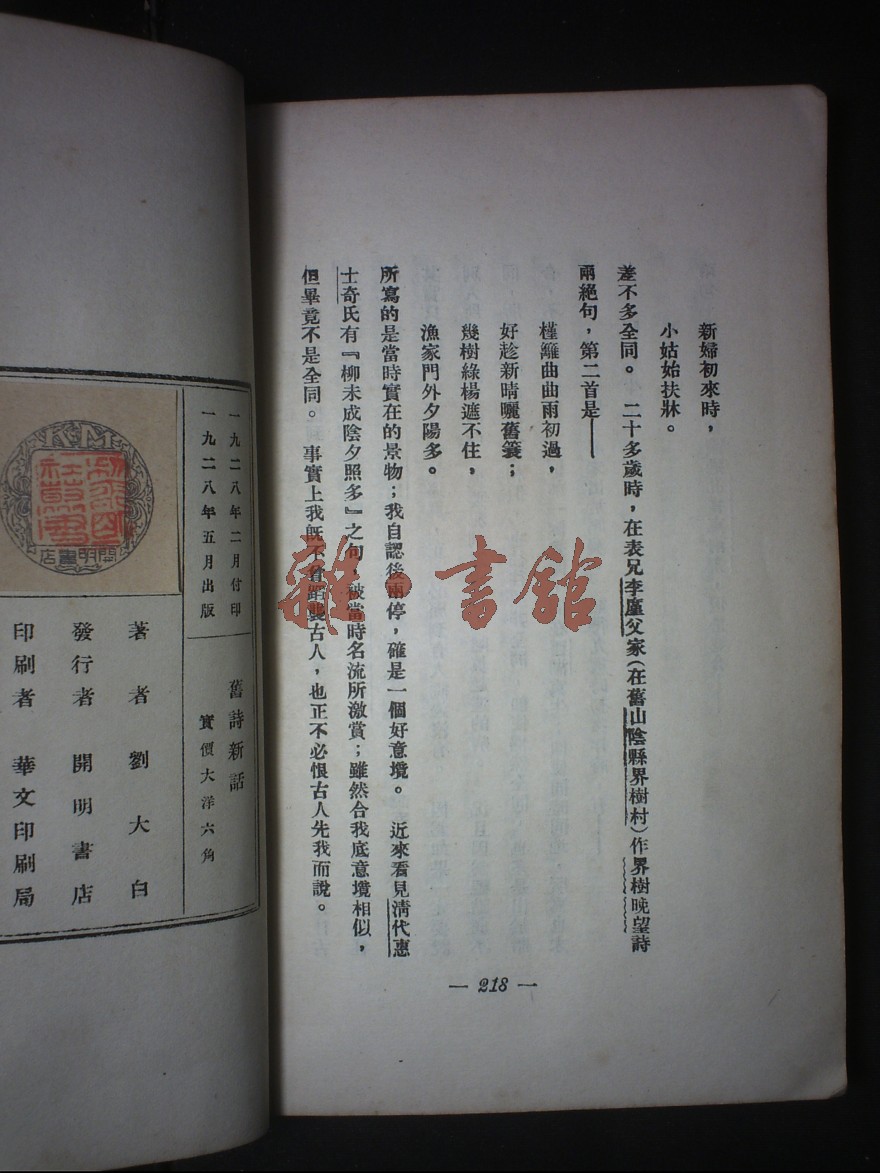 新婦初來時，
小姑始扶牀。
差不多全同。二十多歲時，在表兄李廬父家（在舊山陰縣界樹村）作界樹晚望詩
兩絕句，第二首是——
槿籬曲曲雨初過，
好趁新晴曬舊簑；
幾樹綠楊遮不住，
漁家門外夕陽多。
所寫的是當時實在的景物；我自認後兩停，確是一個好意境。近來看見清代惠
士奇氏有『柳未成陰夕照多』之句，被當時名流所激賞；雖然合我底意境相似，
但畢竟不是全同。事實上我旣不曾蹈襲古人，也正不必恨古人先我而說。
— 218 —
雜·書館
舊詩新話
實價大洋六角
一九二八年二月付印
一九二八年五月出版
著者 劉大白
發行者 開明書店
印刷者 華文印刷局
K M
開明書店